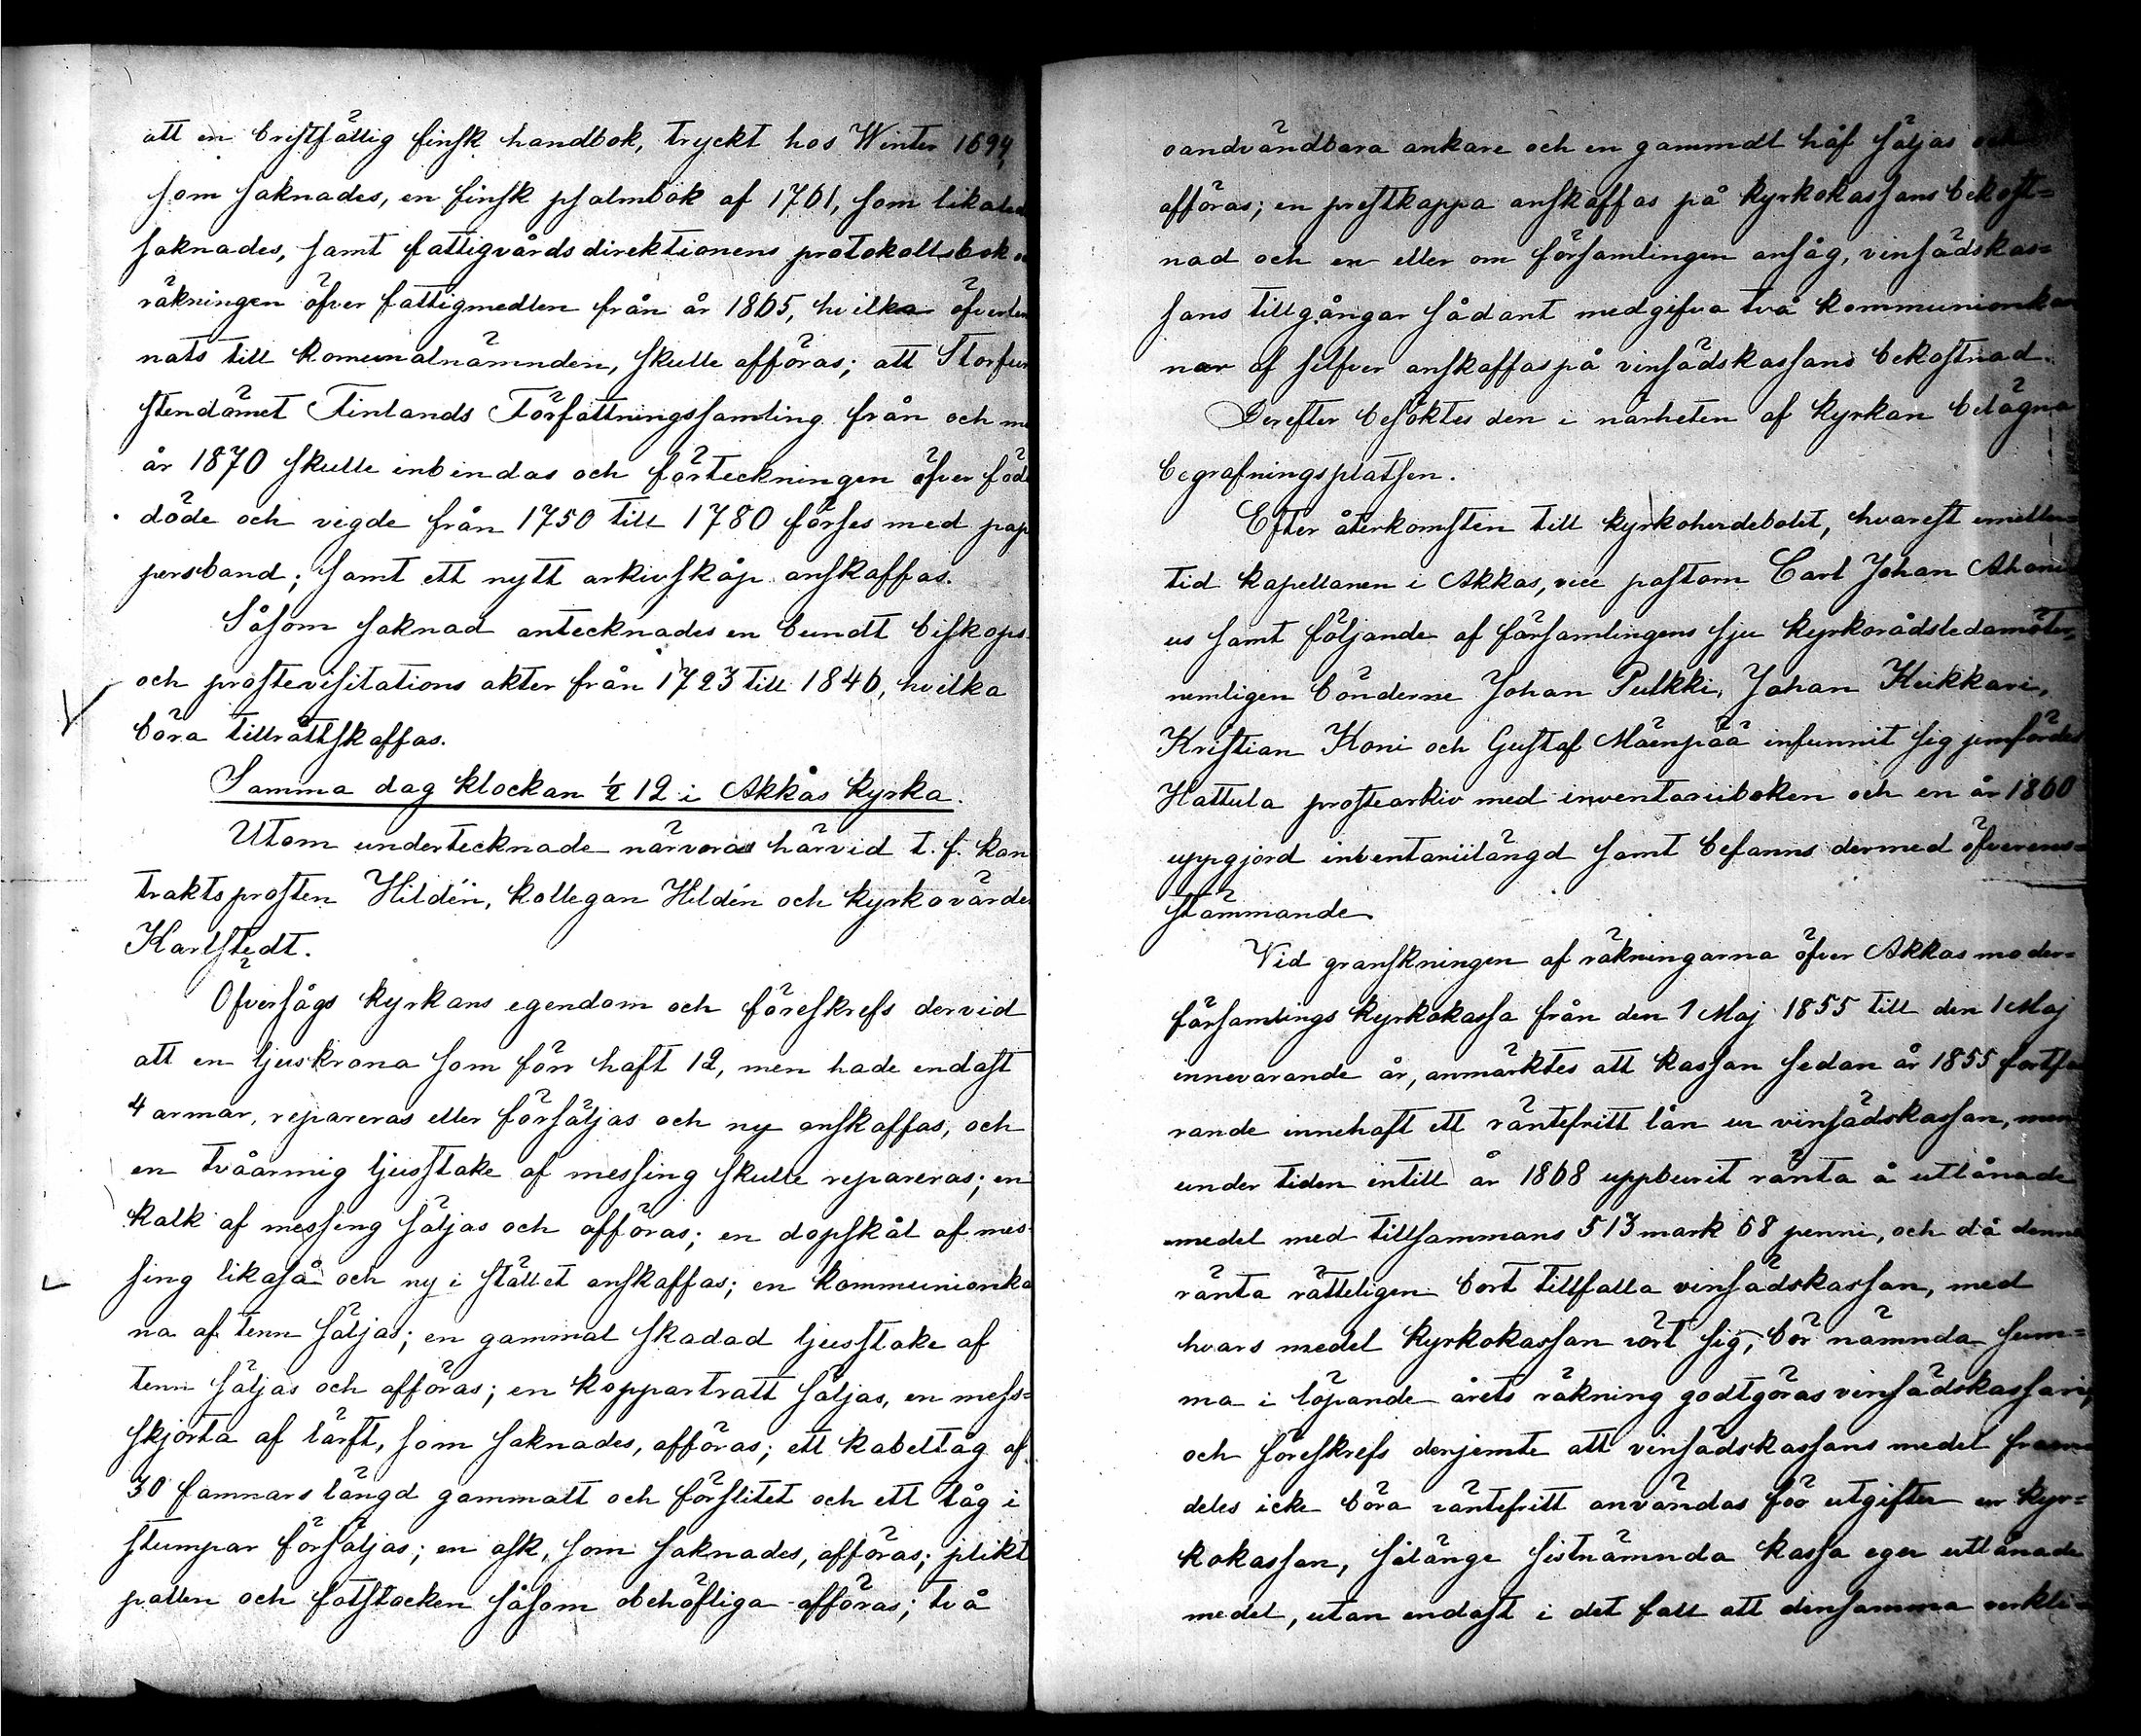 att en bristfällig finsk handbok, tryckt hos Winter 1694,
som saknades, en finsk psalmbok af 1701, som likaled
saknades, samt fattigvårdsdirektionens protokollsbok o
räkningen öfver fattigmedlen från år 1865, hvilka öfverlem
nats till komunalnämnden, skulle afföras; att Storfur
stendömet Finlands Författningssamling från och me
år 1870 skulle inbindas och förteckningen öfver föd
döde och vigde från 1750 till 1780 förses med pap
persband; samt ett nytt arkivskåp anskaffas.
Såsom saknad antecknades en bundt biskops-
och prostevisitations akter från 1723 till 1846, hvilka
böra tillrättskaffas.
Samma dag klockan ½ 12 i Akkas kyrka.
Utom undertecknade närvoro härvid t. f. kon
traktsprosten Hildén, kollegan Hildén och kyrkovärde
Karlstedt.
Öfversågs kyrkans egendom och föreskrefs dervid
att en ljuskrona som förr haft 12, men hade endast
4 armar, repareras eller försäljas och ny anskaffas, och
en tvåarmig ljusstake af messing skulle repareras; en
kalk af messing säljas och afföras; en dopskål af mes-
sing likaså och ny i stället anskaffas; en kommunionka
na af tenn säljas; en gammal skadad ljusstake af
tenn säljas och afföras; en koppartratt säljas, en mess=
skjorta af lärft, som saknades, afföras; ett kabeltåg af
30 famnars längd gammalt och förslitet och ett tåg i
stumpar försäljas; en ask, som saknades, afföras; plikt
pallen och fotstocken såsom obehöfliga afföras; två
oandvändbara ankare och en gammdl håf säljas och
afföras; en prestkappa anskaffas på kyrkokassans bekost=
nad och en eller om församlingen ansåg, vinsädskas=
sans tillgångar sådant medgifva två kommunionkan
nor af silfver anskaffas på vinsädskassans bekostnad.
Derefter besöktes den i närheten af kyrkan belägna
begrafningsplatsen.
Efter återkomsten till kyrkoherdebolet, hvarest emeller=
tid kapellanen i Akkas, vice pastorn Carl Johan Ahoni
us samt följande af församlingens sju kyrkorådsledamöter,
nemligen bönderne Johan Pulkki, Johan Keikkari,
Kristian Koni och Gustaf Mäenpää infunnit sig jemfördes
Hattula prostearkiv med inventariiboken och en år 1860
uppgjord inventariilängd samt befanns dermed öfverens=
stämmande.
Vid granskningen af räkningarna öfver Akkas moder=
församlings kyrkokassa från den 1 Maj 1855 till den 1 Maj
innevarande år, anmärktes att kassan sedan år 1855 fortfa
rande innehaft ett räntefritt lån ur vinsädskassan, men
under tiden intill år 1868 uppburit ränta å utlånade
medel med tillsammans 513 mark 68 penni, och då denna
ränta rätteligen bort tillfalla vinsädskassan, med
hvars medel kyrkokassan rört sig, bör nämnda sum=
ma i löpande årets räkning godtgöras vinsädskassan,
och föreskrefs derjemte att vinsädskassans medel fram
deles icke böra räntefritt användas för utgifter ur kyr=
kokassan, sålänge sistnämnda kassa eger utlånade
medel, utan endast i det fall att densamma verkli=